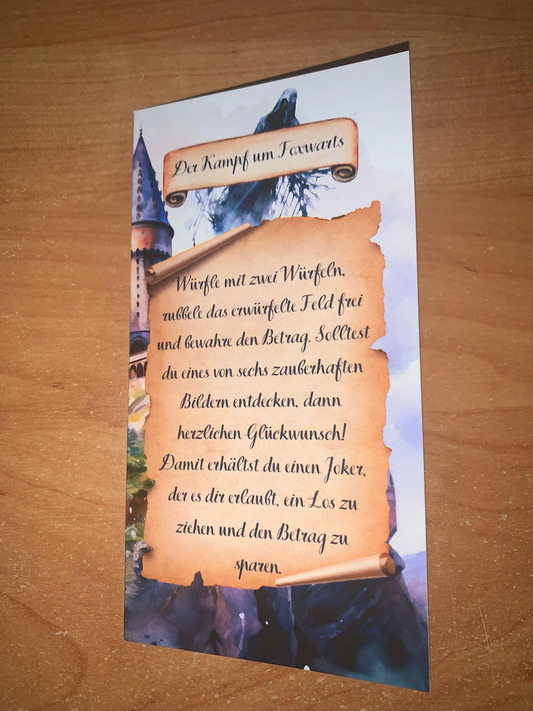 Der Kampf um Foxwarts
Würfle mit zwei Würfeln,
rubbele das erwürfelte Feld frei
und bewahre den Betrag. Solltest
du eines von sechs zauberhaften
Bildern entdecken, dann
herzlichen Glückwunsch!
Damit erhältst du einen Joker,
der es dir erlaubt, ein Los zu
ziehen und den Betrag zu
sparen.